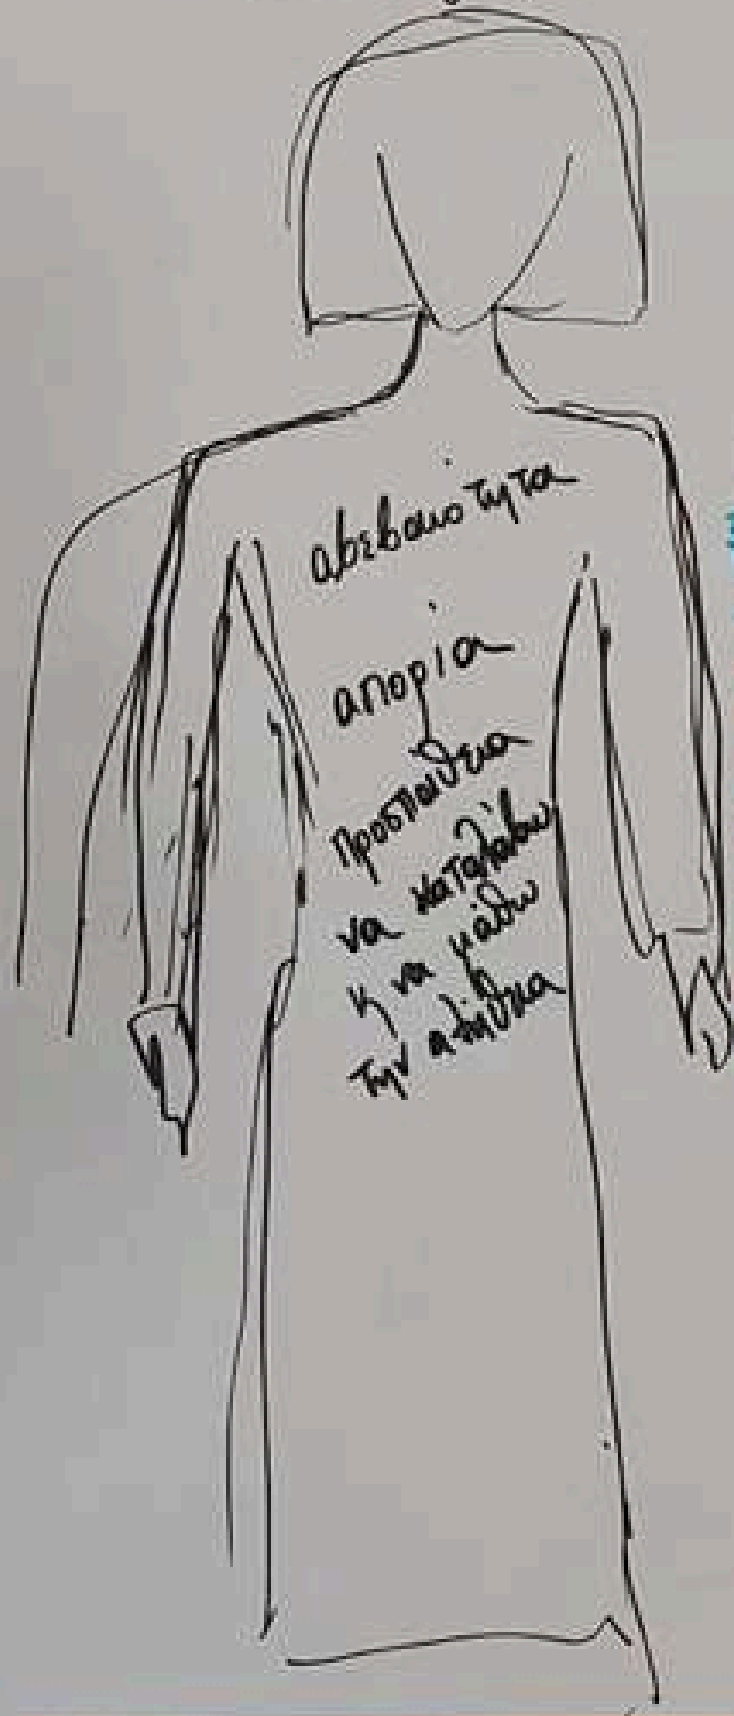 αβεβαιότητα
απορία
προσπάθεια
να καταλάβω
κ να μάθω
την αλήθεια